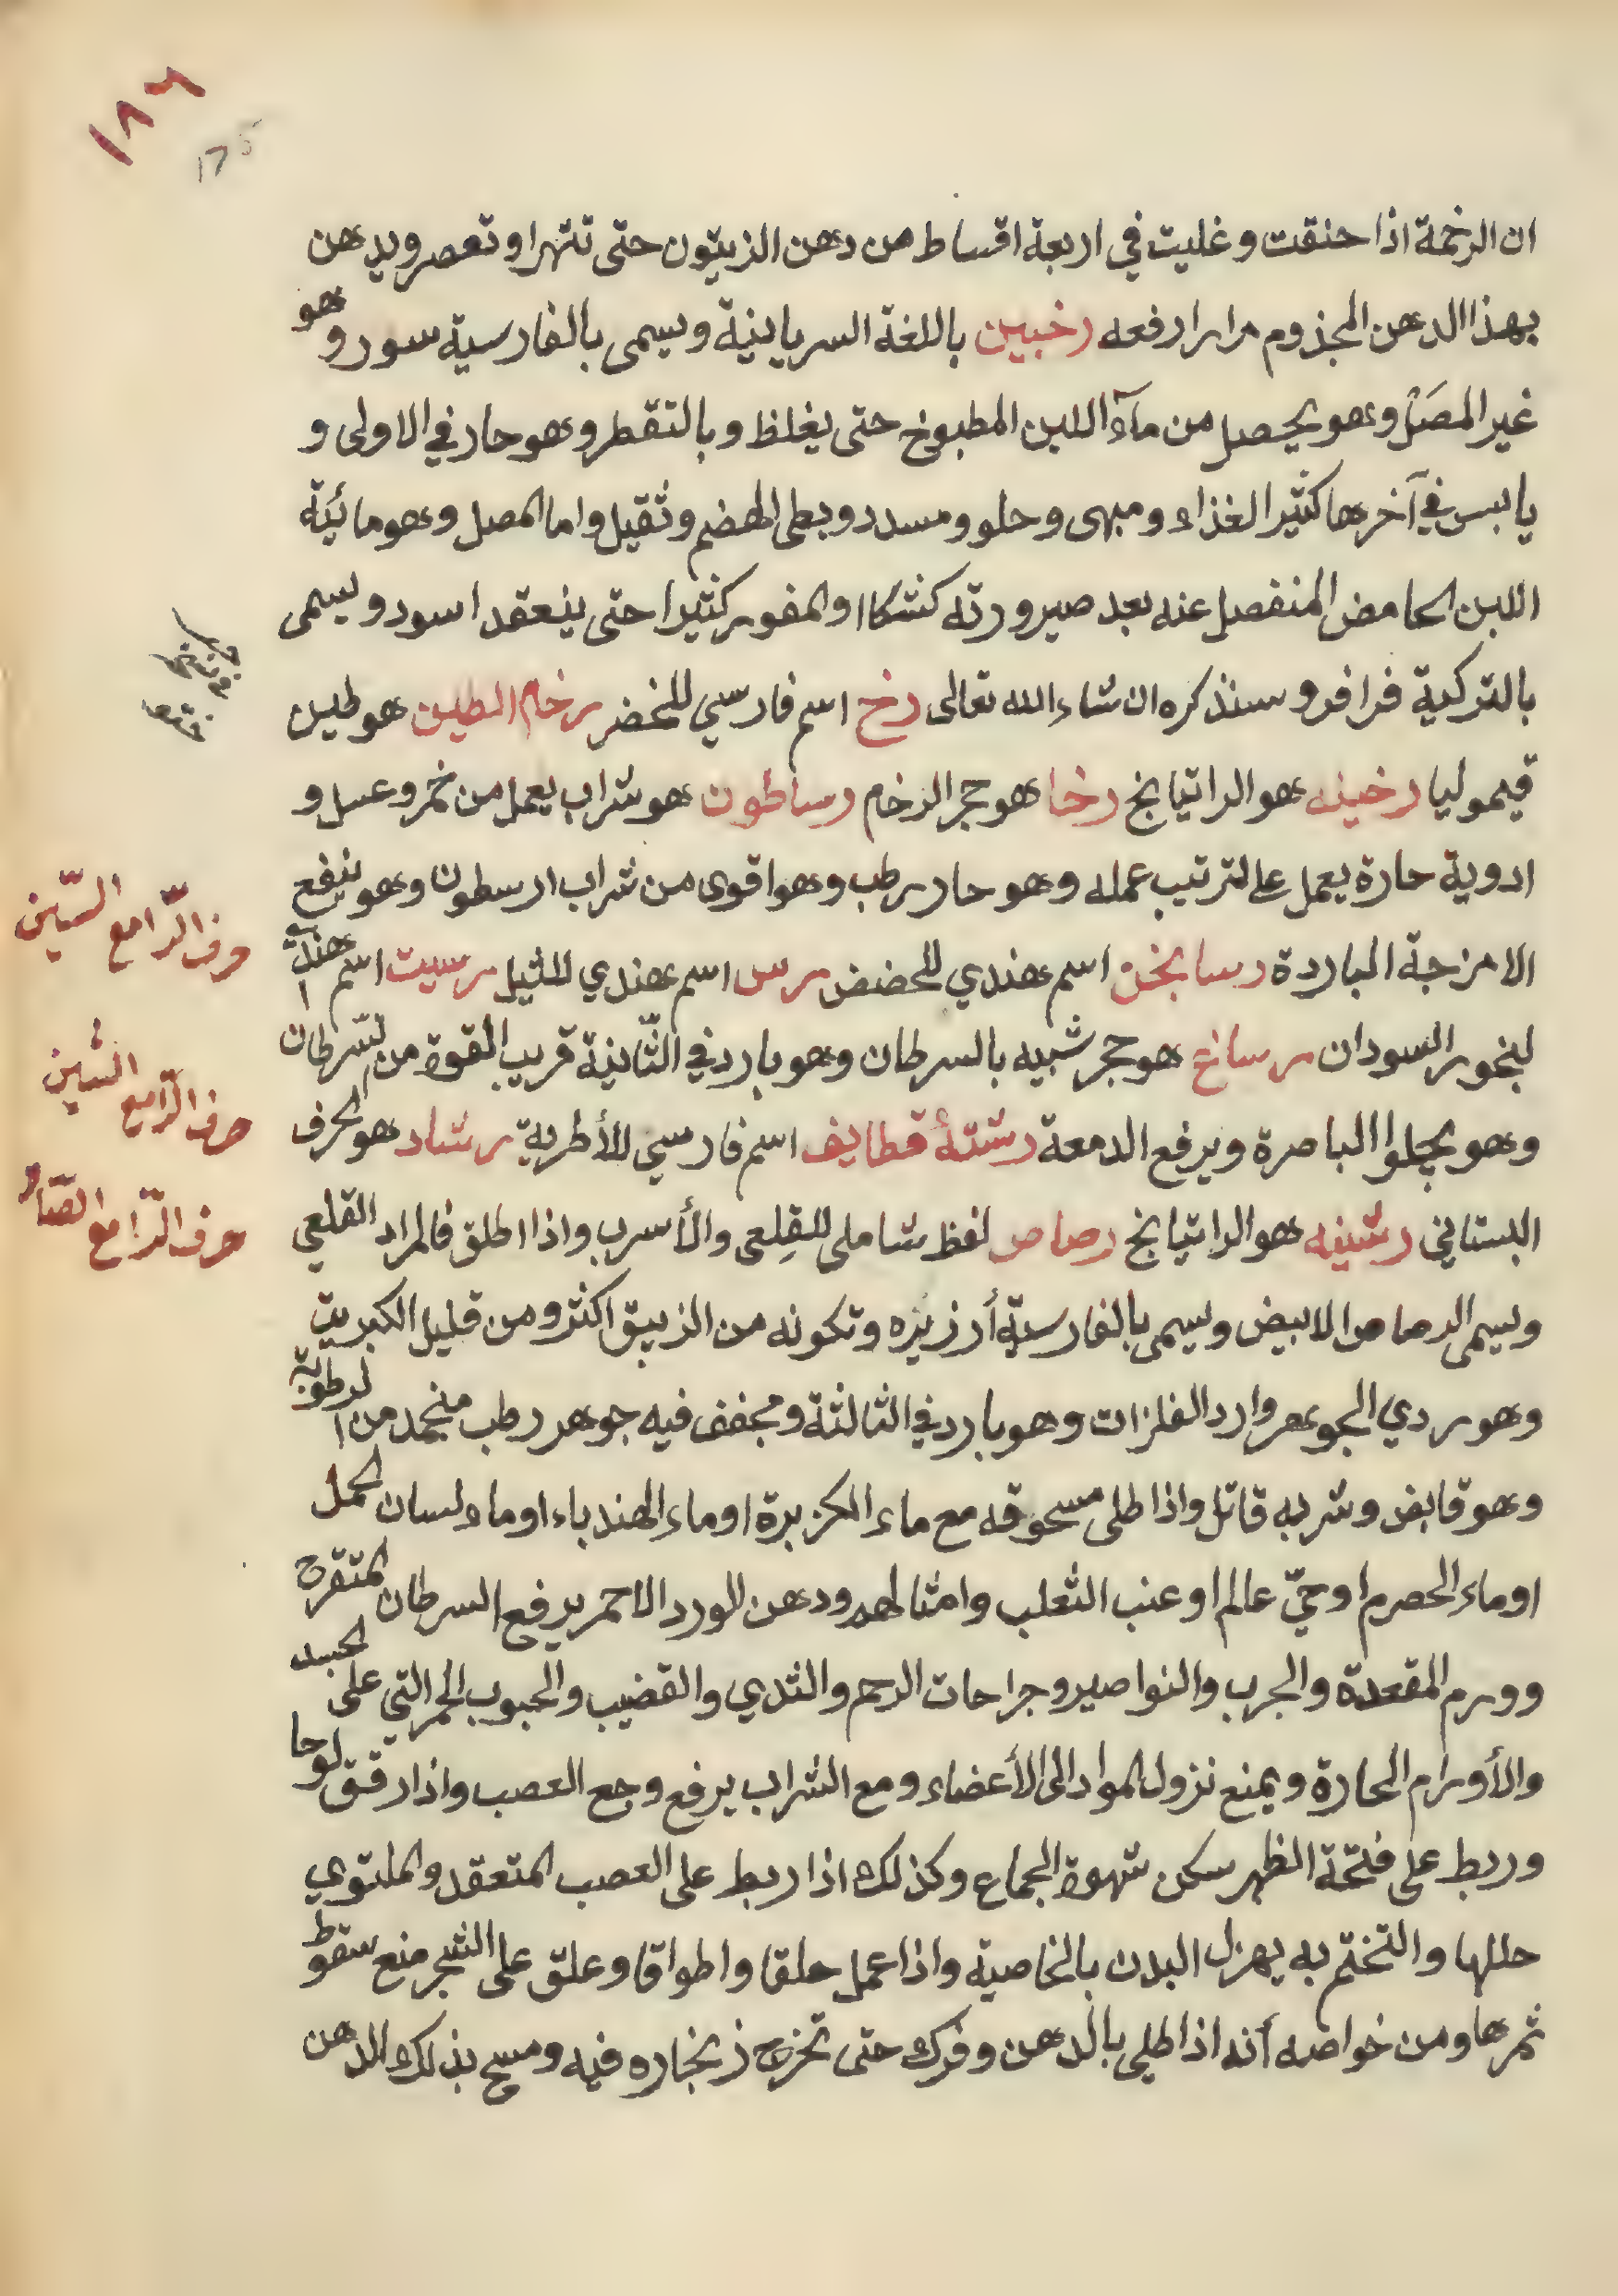 ١٨٦
175
ان الرخمة اذا خنقت وغليت في اربعة اقساط من دهن الزيتون حتى تتهرا وتعصر ويدهن
بهذا الدهن المجذوم مرارا رفعه رخبين باللغة السريانية ويسمى بالفارسية سورو هو
غير المصل وهو يحصل من مآء اللبن المطبوخ حتى يغلظ وبالتقطر وهو حار في الاولى و
يابس في آخرها كثير الغذاء ومبهى وحلو ومسدد وبطى الهضم وثقيل واما المصل وهو مائية
اللبن الحامض المنفصل عنه بعد صيرورته كشكا والمفور كثيرا حتى ينعقد اسود ويسمى
بالتركية فراقرو سنذكره ان شاء الله تعالى رخ اسم فارسي للخضر رخام الطين هو طين
قيموليا رخينه هو الراتيانج رخا هو حجر الرخام رساطون هو شراب يعمل من خمر وعسل و
ادوية حارة يعمل على ترتيب عمله وهو حار رطب وهو اقوى من شراب ارسطون وهو ينفع
الامزجة الباردة رسابخن اسم هندي للحضض رس اسم هندي للثيل رسيت اسم هندية
لبخور السودان رسانع هو حجر شبيه بالسرطان وهو بارد في الثّانية قريب القوة من السّرطان
وهو يجلوا الباصرة ويرفع الدمعة رشتهٔ قطايف اسم فارسي للأطرية رشاد هو الحرف
البستاني رشينه هو الراتيانج رصاص لفظ شامل للقلعى والأسرب واذا اطلق فالمراد القلعي
ويسمى الرصاص الابيض ويسمى بالفارسيّة أرزيزه وتكونه من الزيبق اكثر ومن قليل الكبريت
وهو ردي الجوهر وارد الفلزات وهو بارد في الثالثة ومجفف فيه جوهر رطب منجمد من الرطوبة
وهو قابض وشربه قاتل واذا طلى مسحوقه مع ماء الكزبرة او ماء الهندباء او ماء لسان الحمل
او ماء الحصرم او حيّ عالم او عنب الثعلب وامثالهم ودهن الورد الاحمر يرفع السرطان المتقرح
وورم المقعدة والجرب والنواصير وجراحات الرحم والثدي والقضيب والحبوب الحمر التي على الجسد
والأورام الحارة ويمنع نزول المواد الى الأعضاء ومع الشراب يرفع وجع العصب واذا رقق لوحا
وربط على فتحة الظهر سكن شهوة الجماع وكذلك اذا ربط على العصب المتعقد والملتوي
حللها والتختم به يهزل البدن بالخاصية واذا عمل حلقا واطواقا وعلق على الشجر منع سقوط
ثمرها ومن خواصه أنه اذا طلى بالدهن وفرك حتى تخرج زنجاره فيه ومسح بذلك الدهن
حرف الرّا مع السّين
حرف الرّا مع الشين
حرف الرّا مع الصّاد